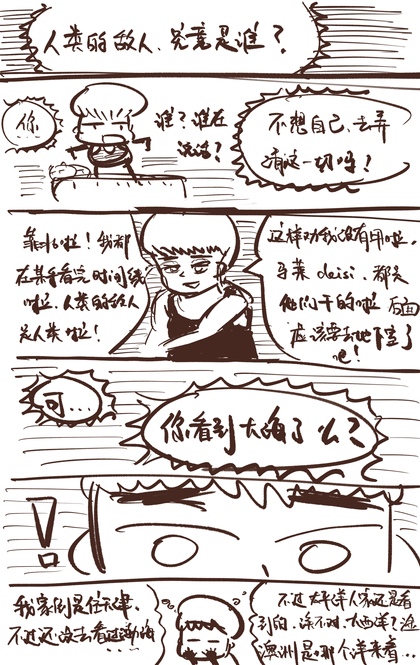 人类的敌人、究竟是谁？
你…
谁？谁在
说话？
不想自己、去弄
清这一切吗？
靠北啦！我都
在某乎看完时间线
啦、人类的敌人
是人类啦！
这样劝我没有用啦、
马莱 deisi、都是
他们干的啦 后面
应该要去地下室了
吧！
可…
你看到大海了么？
！
我家倒是住天津、
不过还没去看过渤海…
不过太平洋人家还是看
到的、涂不对、大西洋？
澳洲是哪个洋来着…